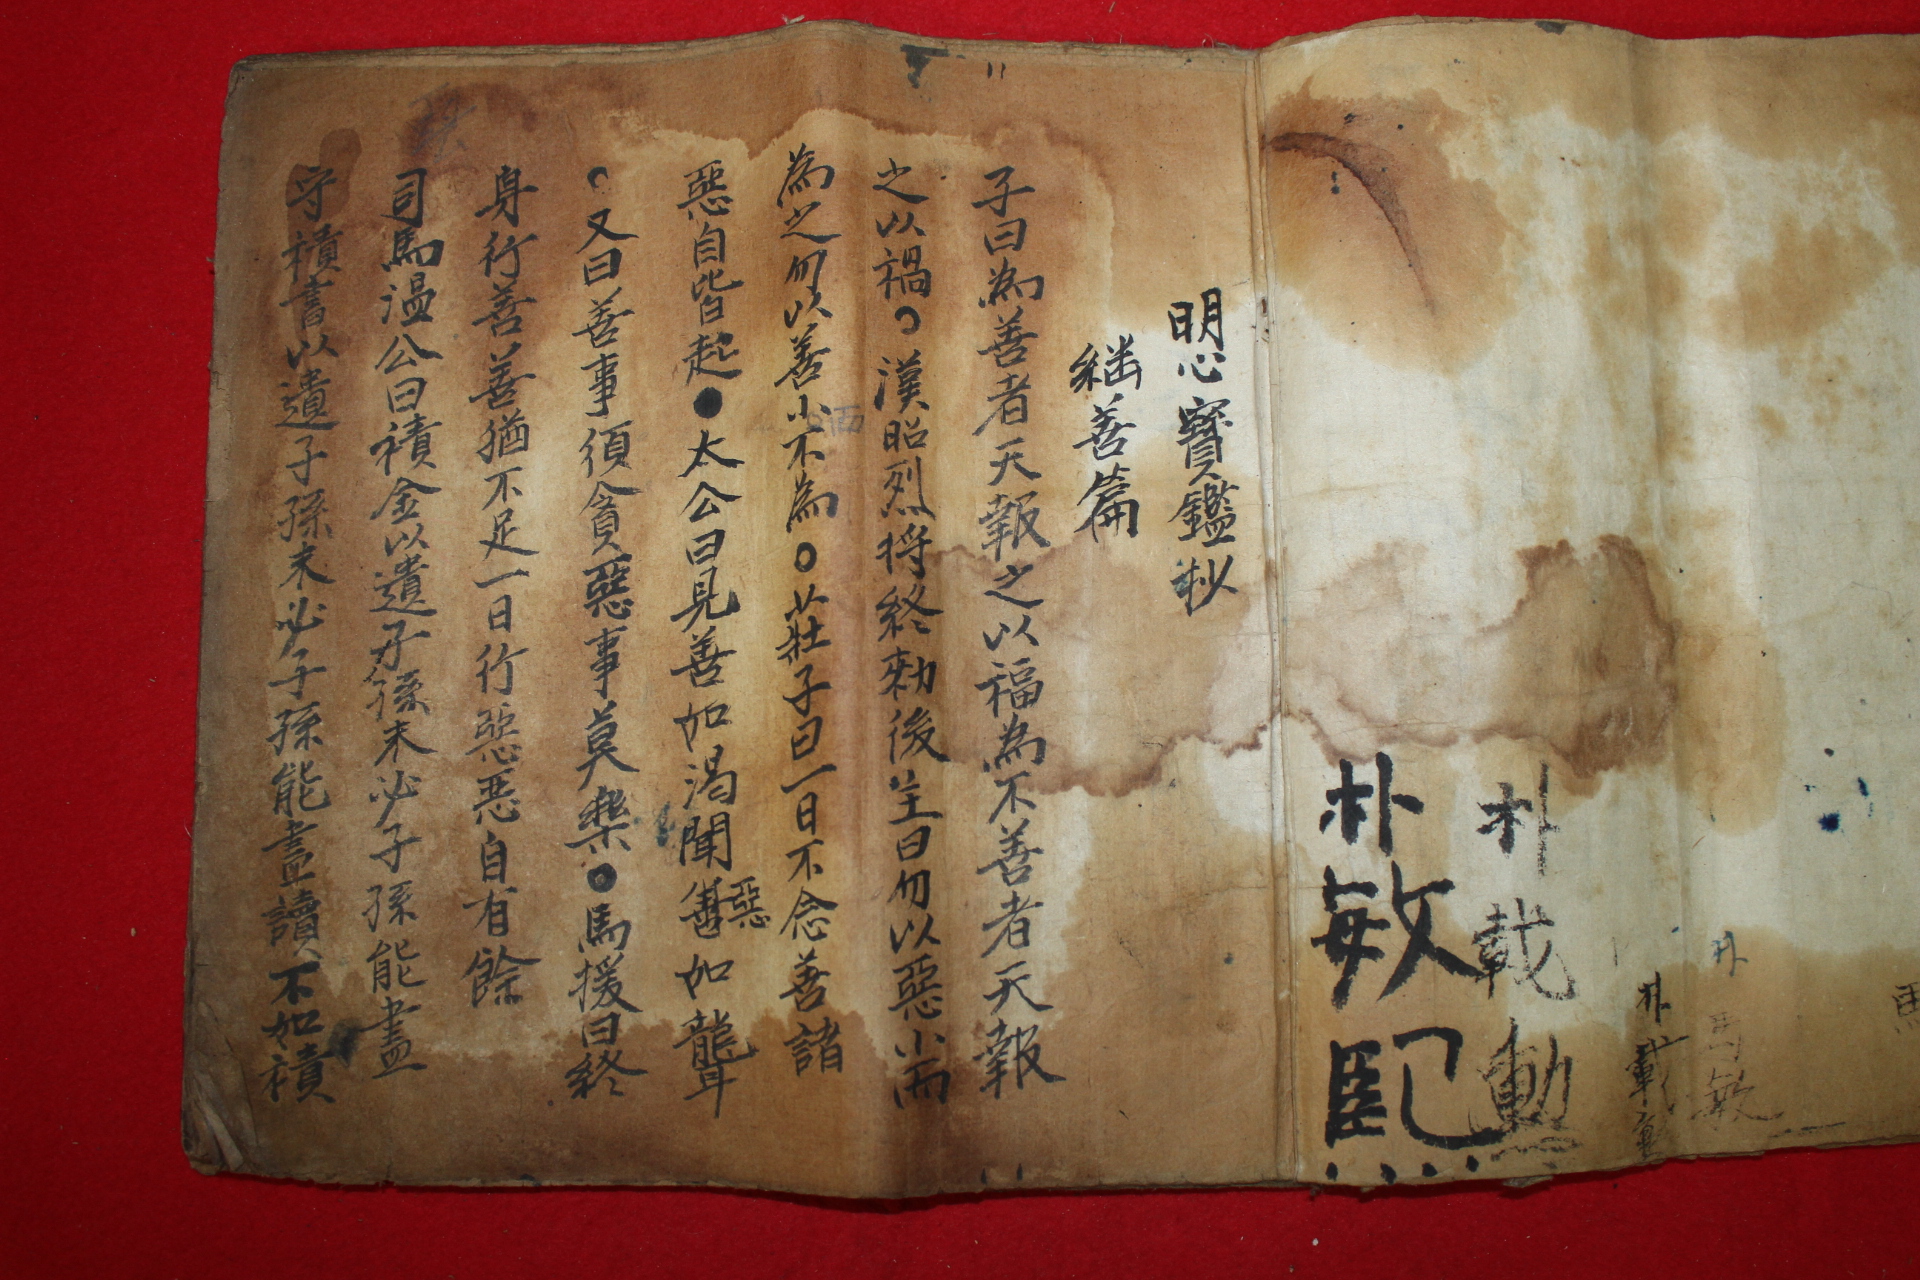 朴載勳
朴敏熙
明心寶鑑抄
継善篇
子曰為善者天報之以福為不善者天報
之以禍○漢昭烈将終勑後主曰勿以惡小而
為之勿以善小不為○莊子曰一日不念善諸
惡自皆起●太公曰見善如渴聞惡如聾
○又曰善事須貪惡事莫樂○馬援曰終
身行善善猶不足一日行惡悪自有餘
司馬温公曰積金以遺子孫未必子孫能盡
守積書以遺子孫未必子孫能盡讀不如積